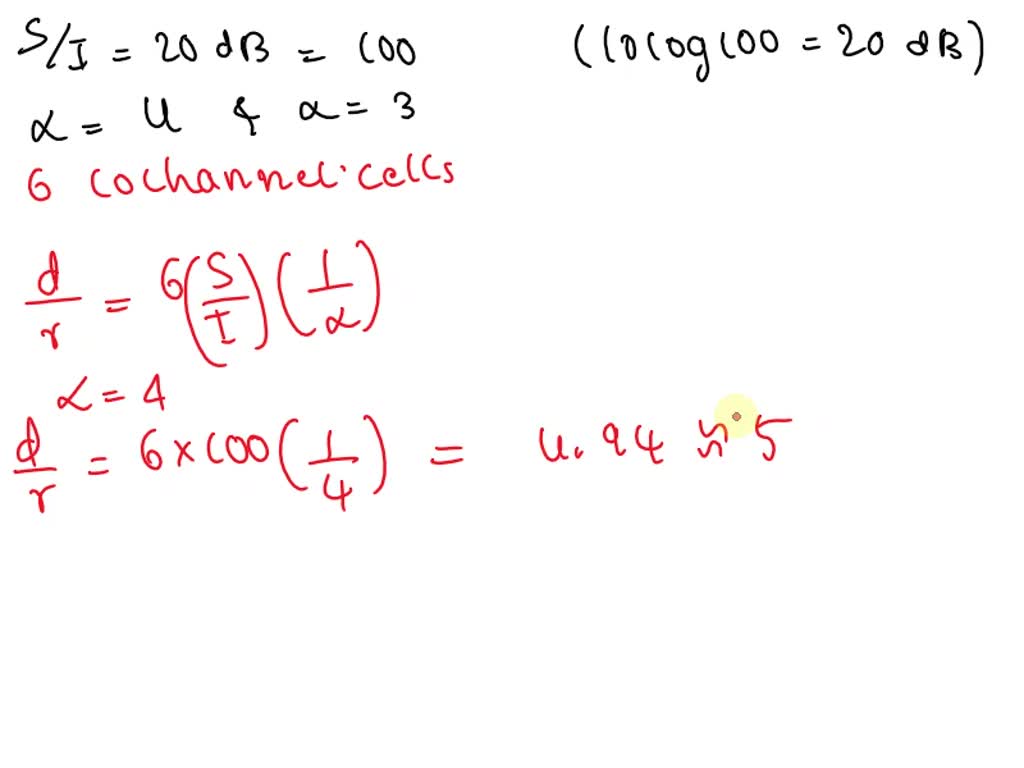 S/I = 20 dB = 100 (10 log 100 = 20 dB)
α = 4 & α = 3
6 cochannel cells
d/r = 6(S/I)(1/α)
α = 4
d/r = 6 × 100 (1/4) = 4.94 ≈ 5